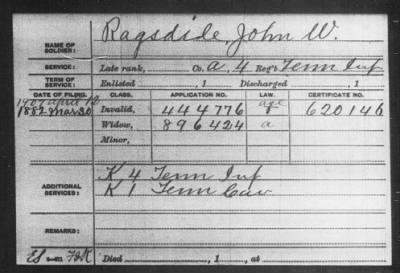 NAME OF SOLDIER: Ragsdide, John W.
SERVICE: Late rank, Co. A, 4 Reg't Tenn Inf
TERM OF SERVICE: Enlisted , 1 Discharged , 1
DATE OF FILING. CLASS. APPLICATION NO. LAW. CERTIFICATE NO.
age
1907 April
1882 Mar 30 Invalid, 444776 620146
Widow, 896424 a
Minor,
ADDITIONAL SERVICES:
K 4 Tenn Inf
K 1 Tenn Cav
REMARKS:
Died , 1 , at